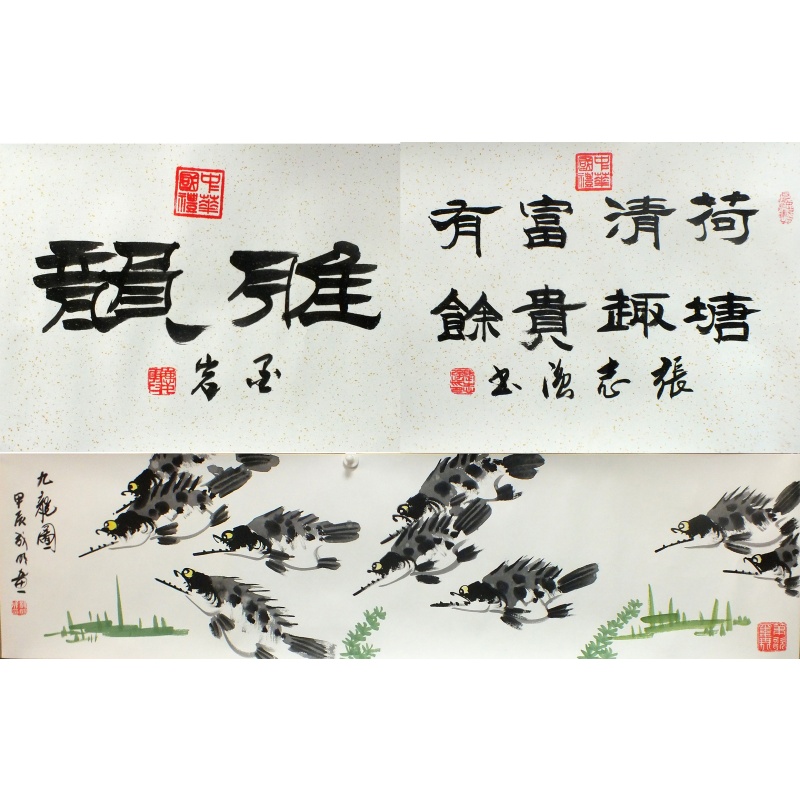 中華國禮
雅韻
中華國禮
荷塘
清趣
富貴
有餘
張志
九龍圖
甲辰